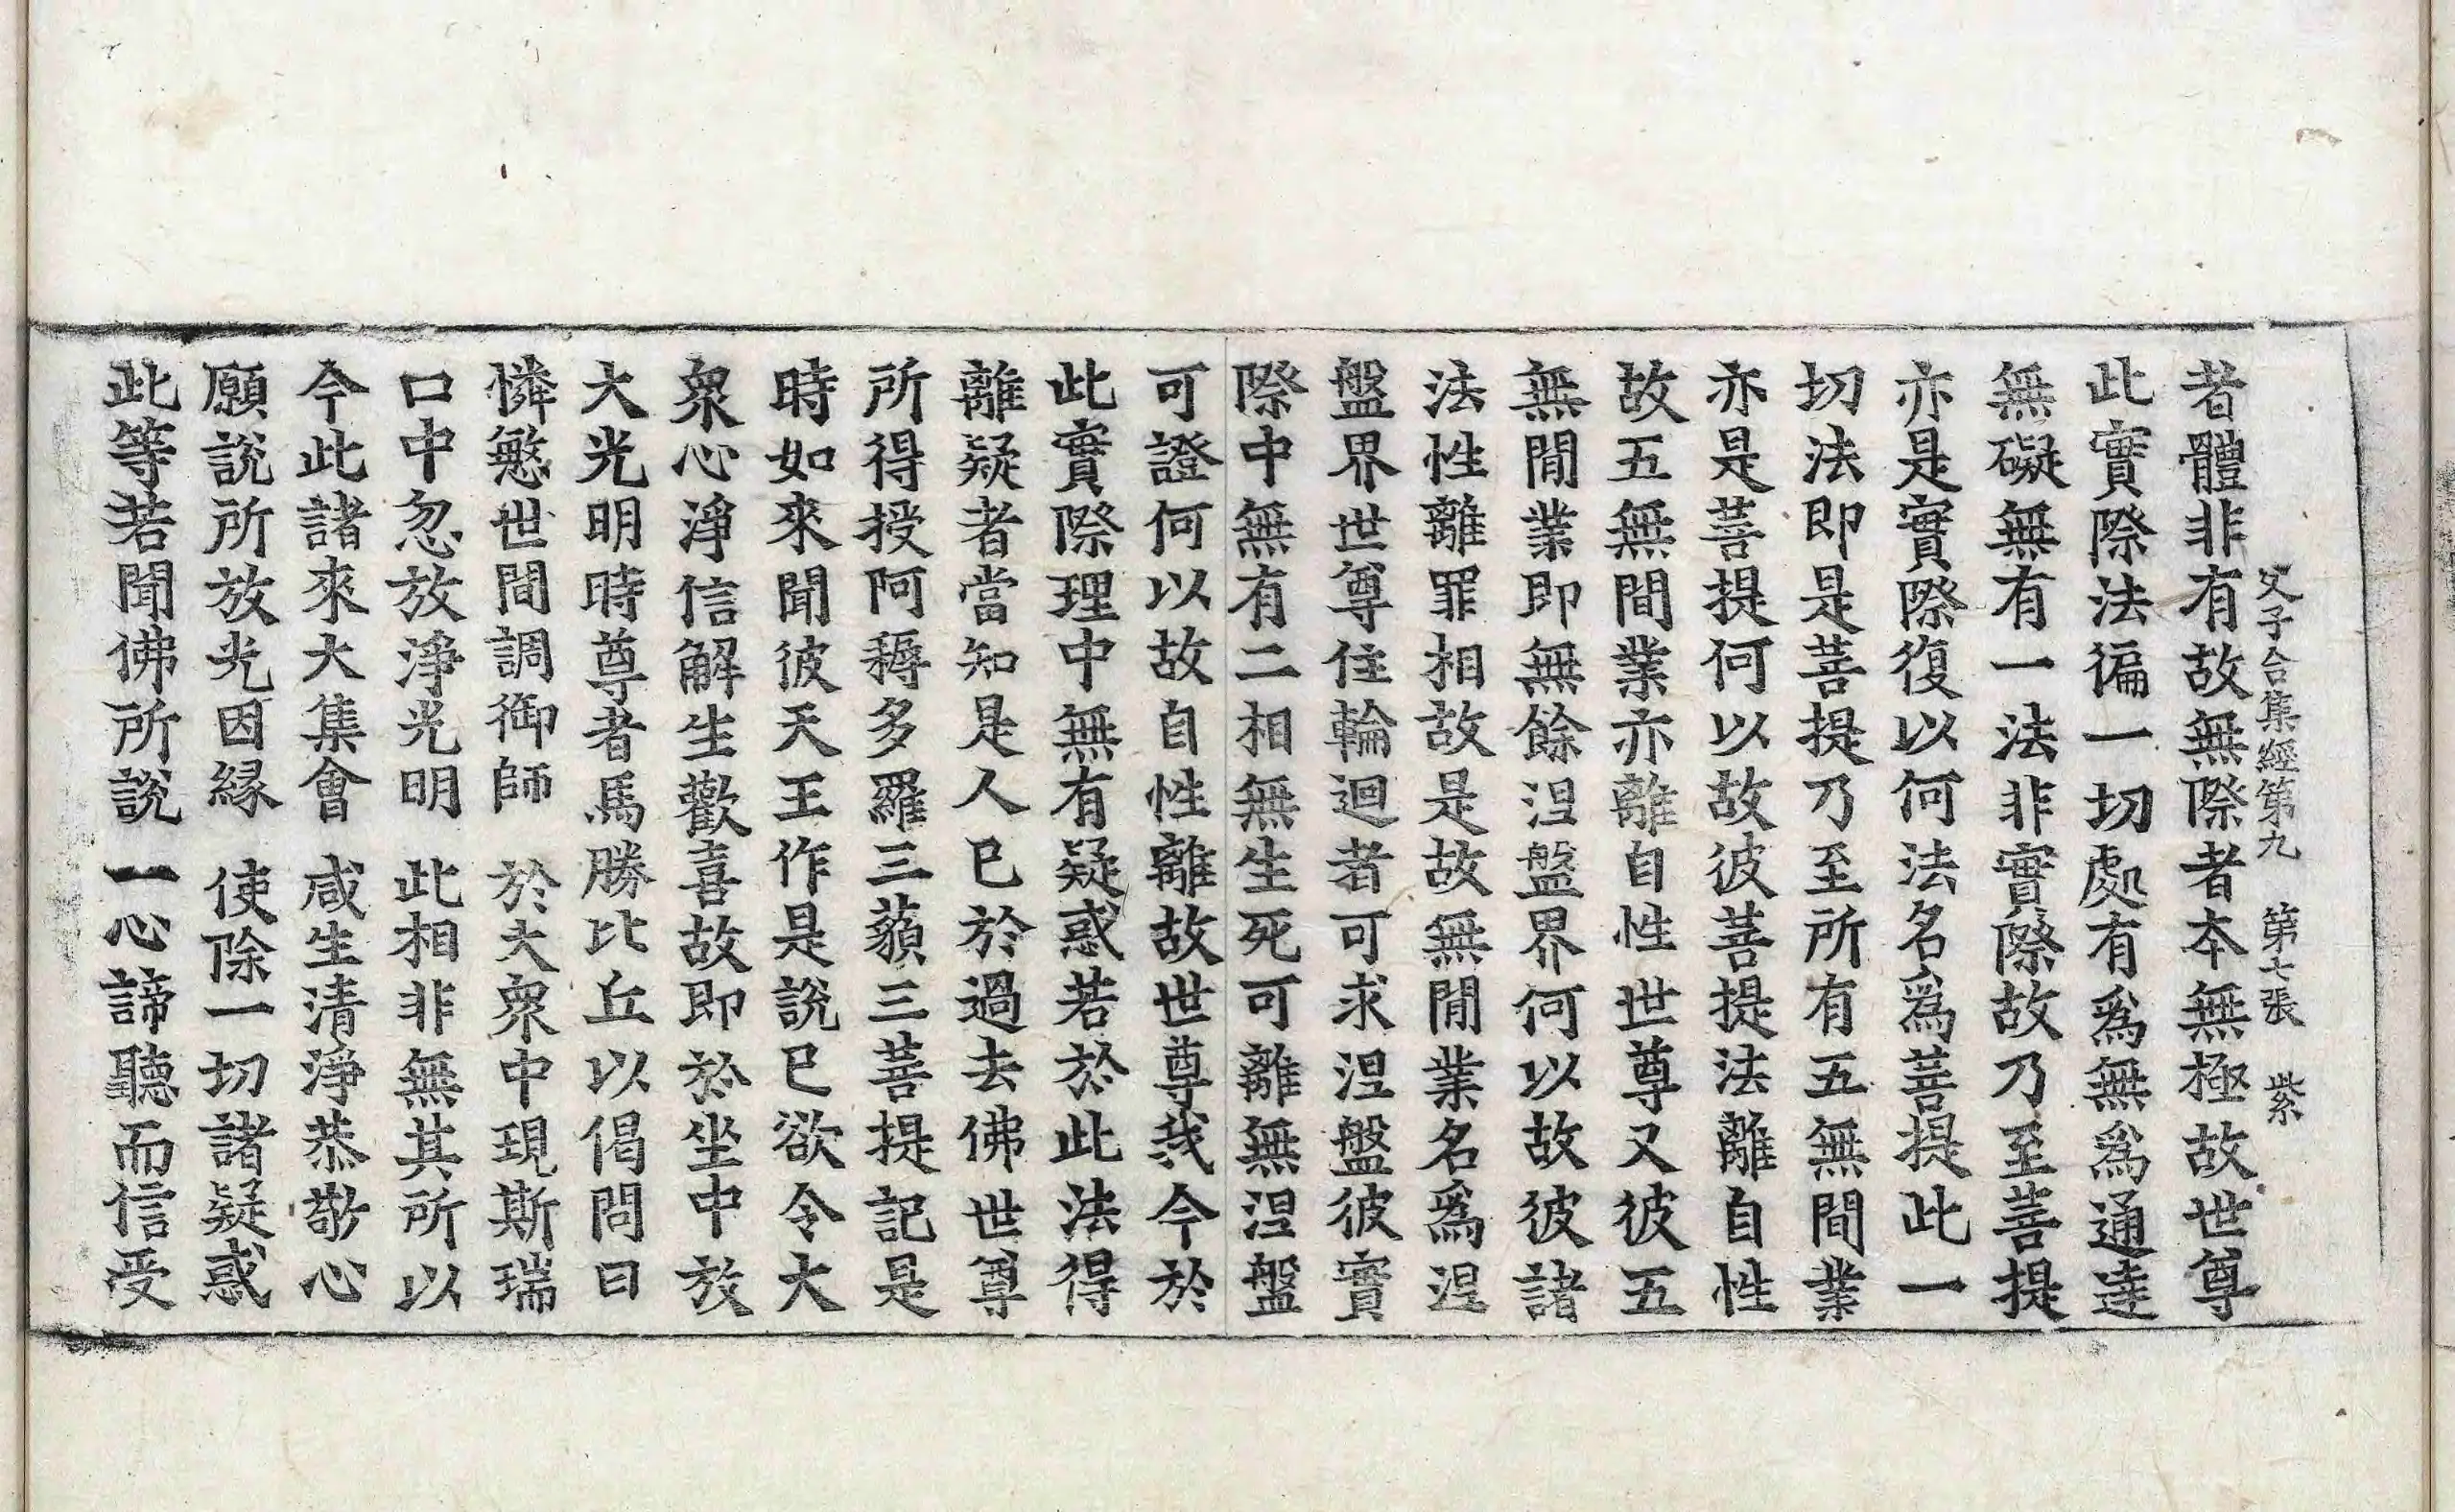 父子合集經第九　第七張　紫
者體非有故無際者本無極故世尊
此實際法徧一切處有爲無爲通達
無礙無有一法非實際故乃至菩提
亦是實際復以何法名爲菩提此一
切法即是菩提乃至所有五無間業
亦是菩提何以故彼菩提法離自性
故五無間業亦離自性世尊又彼五
無間業即無餘涅盤界何以故彼諸
法性離罪相故是故無間業名爲涅
盤界世尊住輪迴者可求涅盤彼實
際中無有二相無生死可離無涅盤
可證何以故自性離故世尊我今於
此實際理中無有疑惑若於此法得
離疑者當知是人已於過去佛世尊
所得授阿耨多羅三藐三菩提記是
時如來聞彼天王作是說已欲令大
衆心淨信解生歡喜故即於坐中放
大光明時尊者馬勝比丘以偈問曰
憐愍世間調御師　於大衆中現斯瑞
口中忽放淨光明　此相非無其所以
今此諸來大集會　咸生清淨恭敬心
願說所放光因緣　使除一切諸疑惑
此等若聞佛所說　一心諦聽而信受